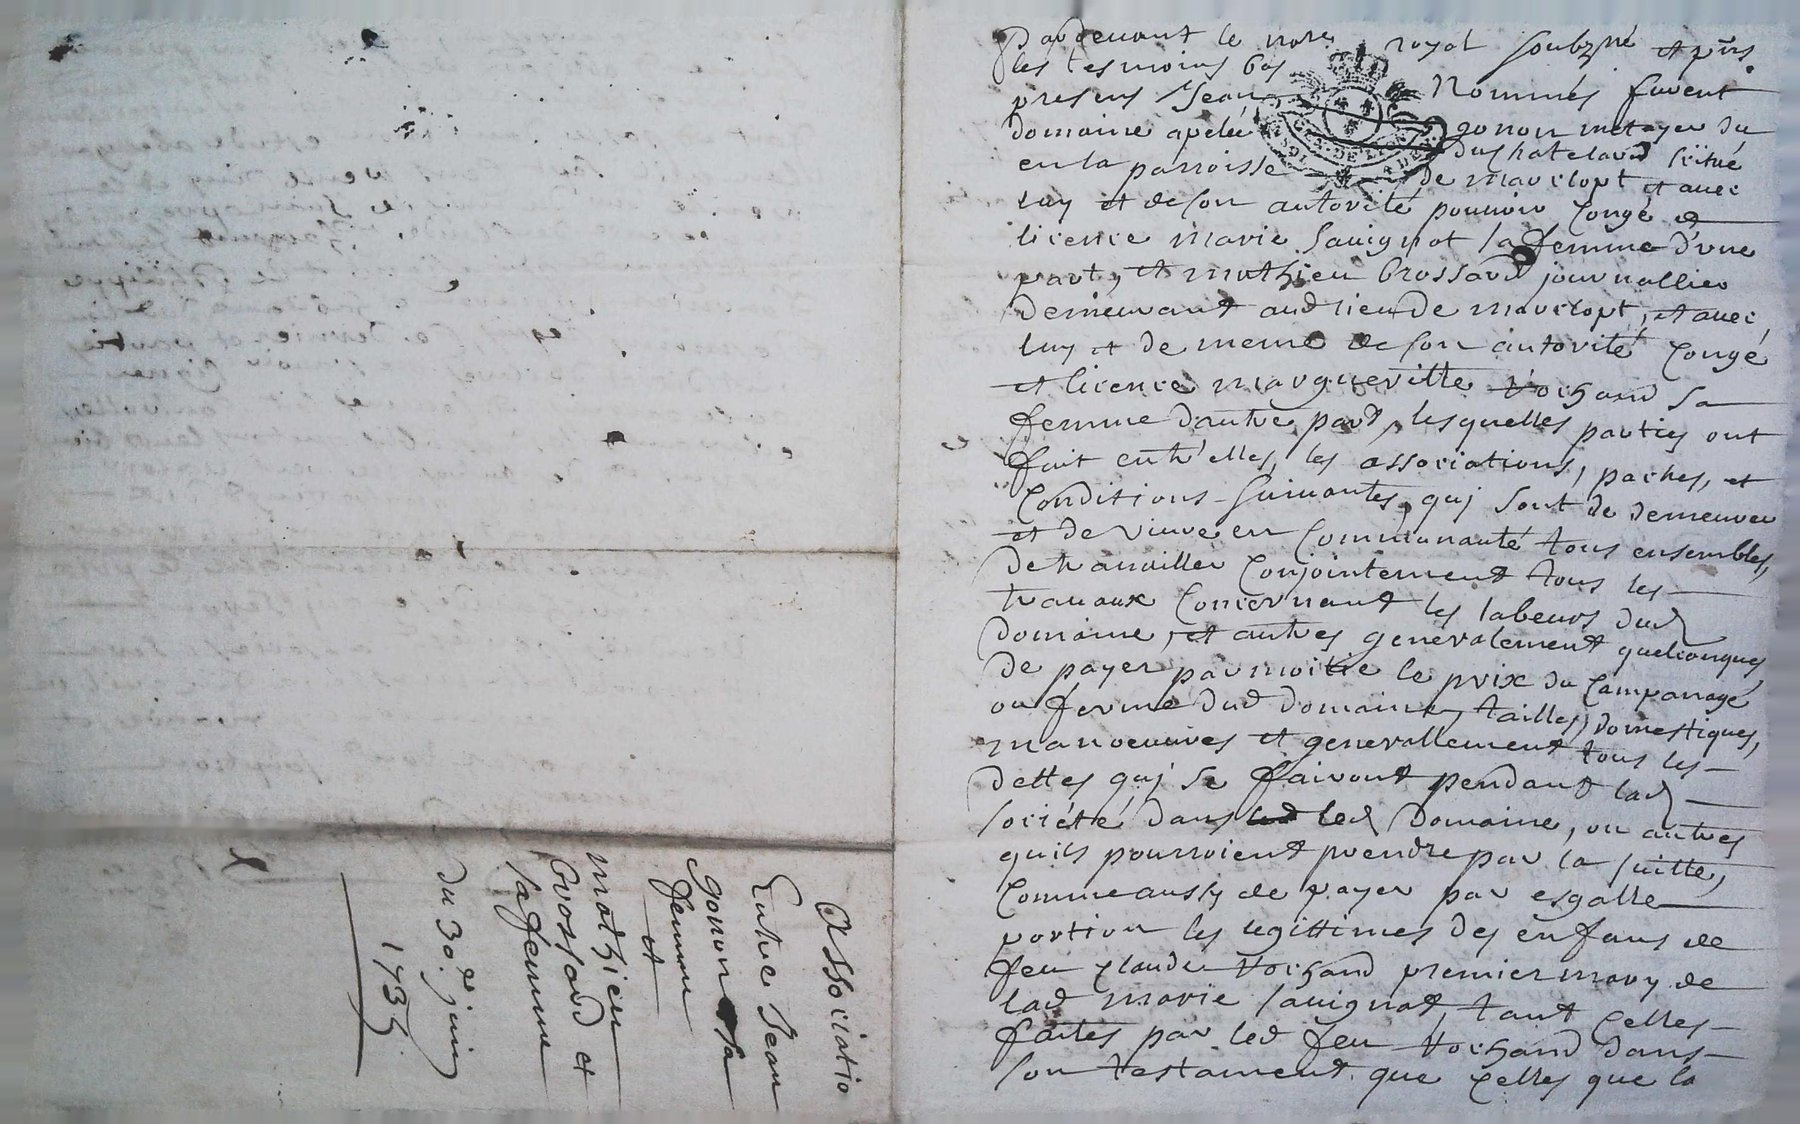 Pardevant le nore royal soubzné et pñs
les tesmoins bas Nommés furent
presens Jean gonon metayer du
domaine apelé du Chatelard scitué
en la parroisse de marclopt et avec
luy et de son autorité pouvoir congé &
licence marie savignat sa femme d'vne
part, et mathieu brossard journallier
demeurant aud lieu de marclopt, et avec
luy et de meme de son autorité congé
et licence margueritte vochand sa
femme d'autre part, lesquelles parties ont
fait entr'elles, les associations, paches, et
conditions suivantes, quj sont de demeurer
et de vivre en communauté tous ensembles,
de travailler conjointement tous les
travaux concernant les labeurs dud
domaine, et autres generalement quelconques,
de payer par moitie le prix du campanage
ou ferme dud domaine, tailles, domestiques,
manoeuvres et generallement tous les
dettes quj se fairont pendant lad
société dans led domaine, ou autres
quils pourroient prendre par la suitte,
comme aussy de payer par esgalle
portion les legittimes des enfans de
feu claude vochand premier mary de
lad marie savignat, tant celles
faites par led feu vochand dans
son testament que celles que la
Associatio
Entre Jean
gonon sa
femme
et
mathieu
brossard et
sa femme
du 30.e juin
1735